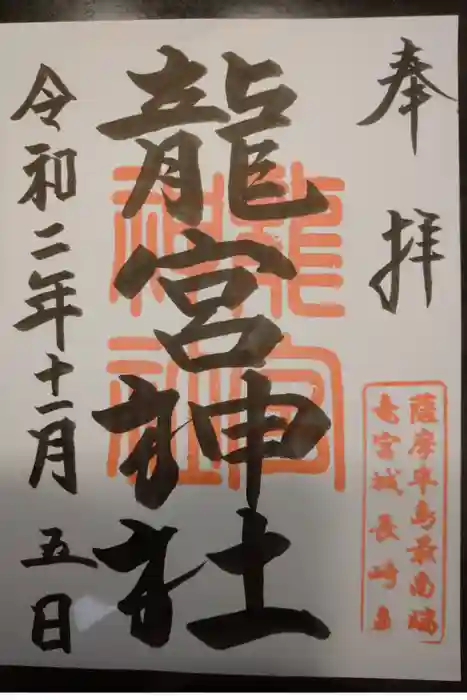 奉拝
薩摩半島最南端
竜宮城長崎鼻
龍宮神社
龍宮
神社
令和二年十一月五日